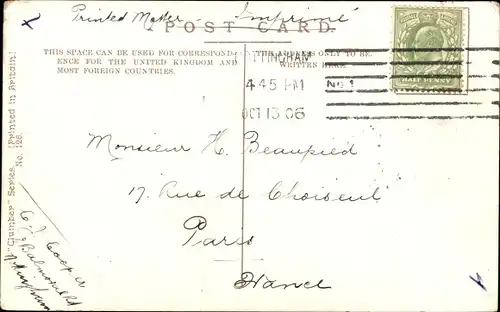 Printed Matter - Imprimé
POST CARD.
THIS SPACE CAN BE USED FOR CORRESPOND-
ENCE FOR THE UNITED KINGDOM AND
MOST FOREIGN COUNTRIES.
THE ADDRESS ONLY TO BE
WRITTEN HERE.
TTINGHAM
4 45 PM No 1
OCT 13 06
HALF PENNY
Monsieur H. Beaupied
17, Rue de Choiseul
Paris
France
"Clumber" Series. [Printed in Britain]
No. 128.
C J Cooper
Balmoral Rd
Nottingham